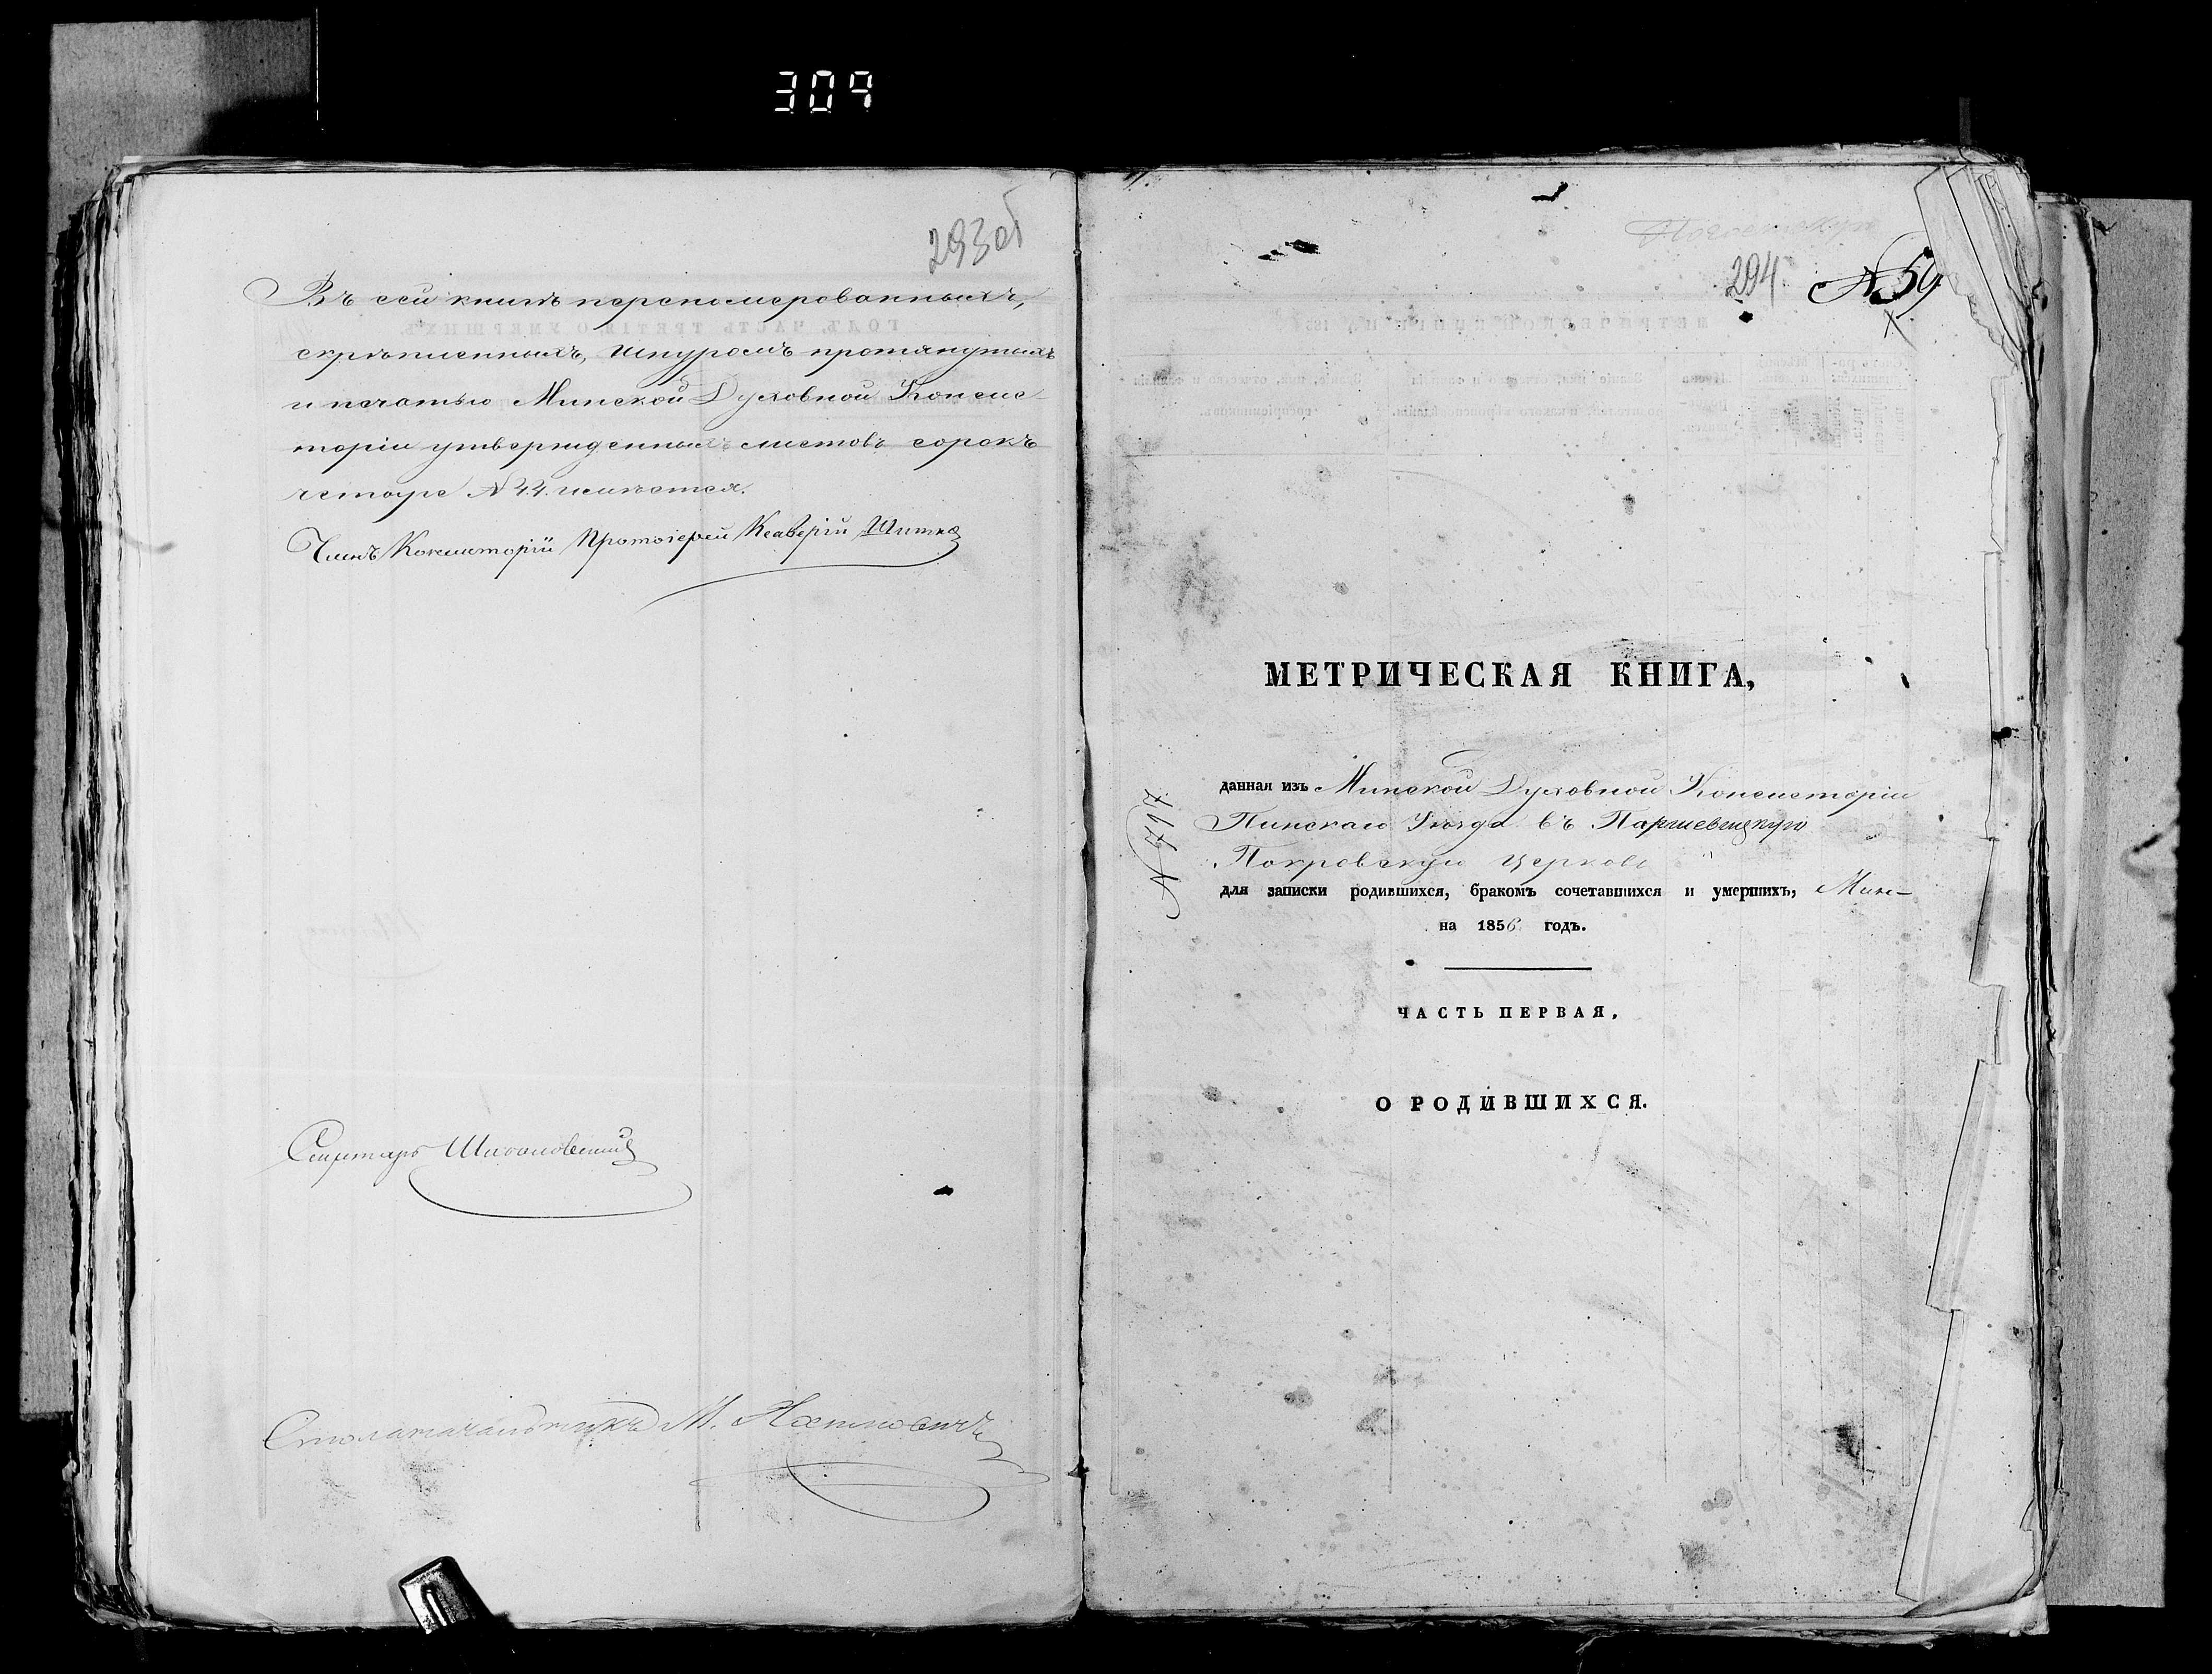 309
293об
Въ сей книгѣ перенумерованныхъ,
скрѣпленныхъ, шнуромъ протянутыхъ
и печатью Минской Духовной Консис-
торіи утвержденныхъ листовъ сорокъ
четыре № 44. имѣется.
Членъ Консисторіи Протоіерей Ксаверій
Секретарь
Столоначальникъ М.
294
№ 59
МЕТРИЧЕСКАЯ КНИГА,
данная изъ Минской Духовной Консисторіи
Пинскаго Уѣзда въ Паршевицкую
Покровскую церковь
для записки родившихся, бракомъ сочетавшихся и умершихъ,
на 1856 годъ.
ЧАСТЬ ПЕРВАЯ,
О РОДИВШИХСЯ.